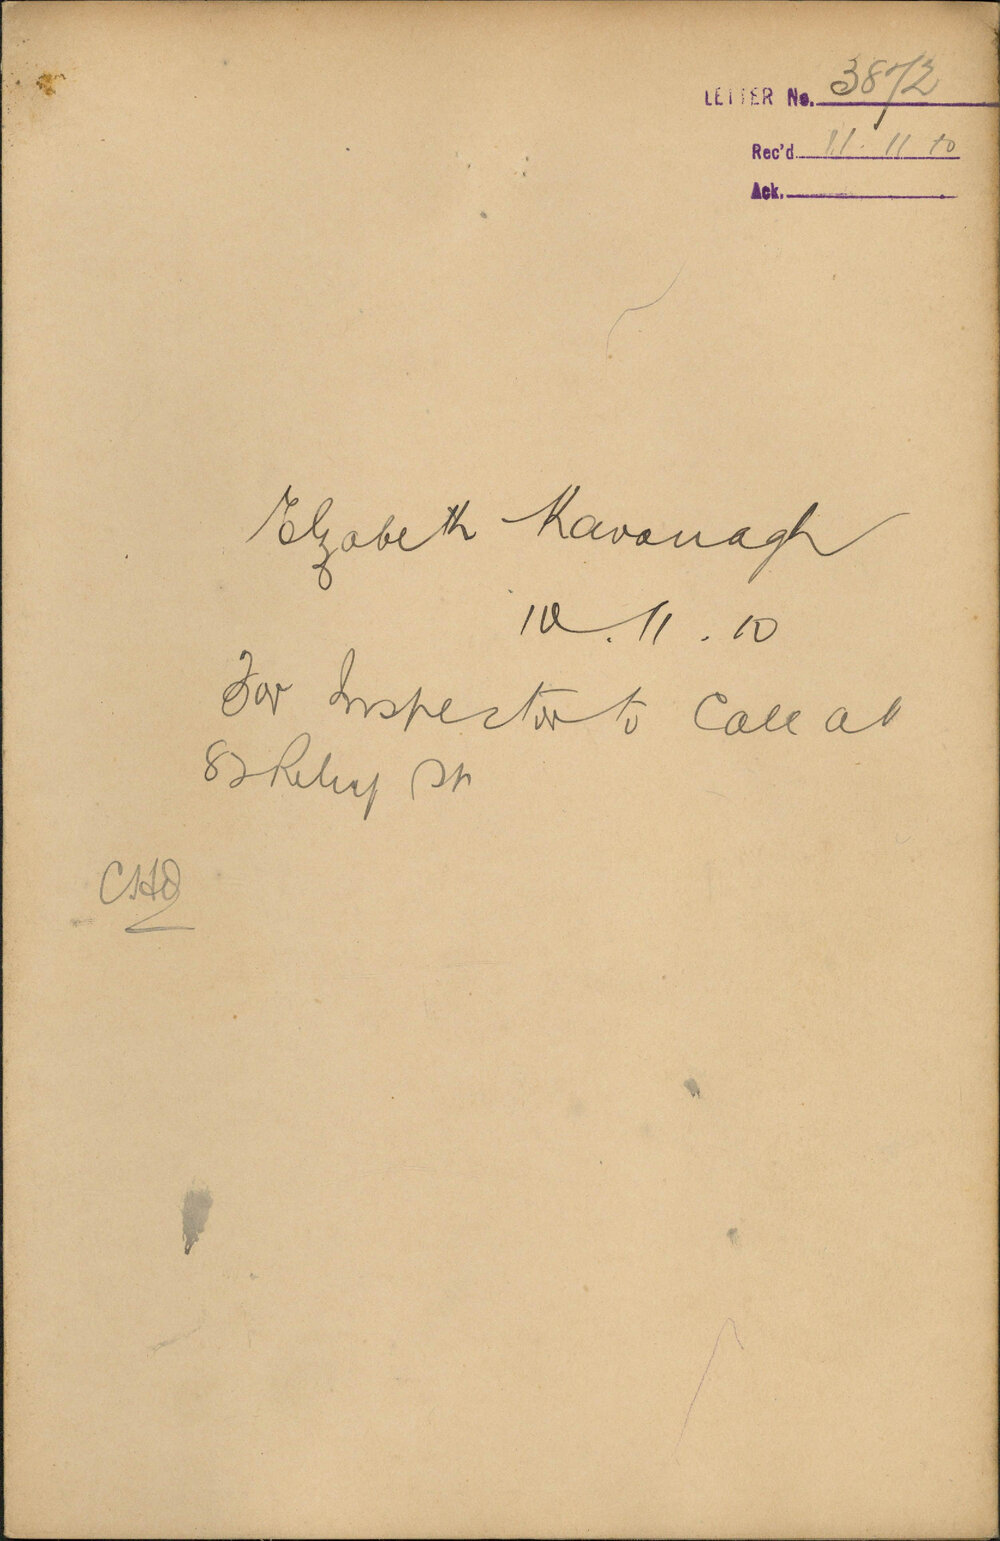 LETTER No. 3872
Rec'd 11. 11 10
Ack.
Elizabeth Kavanagh
10. 11. 10
For Inspector to Call at
82 St